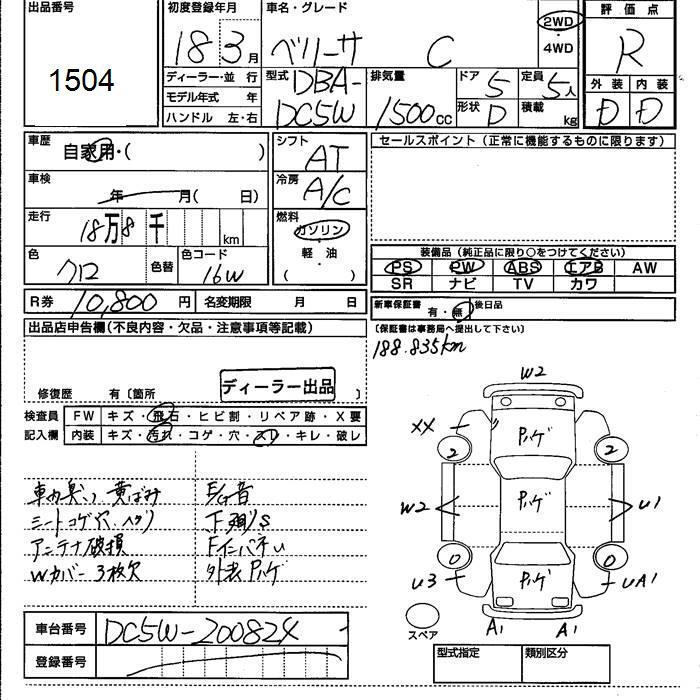 出品番号
1504
初度登録年月
18 3月
車名・グレード
ベリーサ C
2WD
・4WD
評価点
R
外装 内装
D D
ディーラー・並 行
モデル年式 年
ハンドル 左・右
型式 DBA-
DC5W
排気量
1500cc
ドア 5
定員 5人
形状 D
積載 kg
車歴
自家用・( )
車検
年 月( 日)
走行
18万8千 km
色
クロ
色替
色コード
16W
シフト
AT
冷房
A/C
燃料
ガソリン
・
軽・油
( )
R券 10,800円
名変期限 月 日
セールスポイント(正常に機能するものに限ります)
装備品(純正品に限り○をつけてください)
PS PW ABS エアB AW
SR ナビ TV カワ
新車保証書
有・無
後日品
〔保証書は事務局へ提出して下さい〕
188.835km
出品店申告欄(不良内容・欠品・注意事項等記載)
ディーラー出品
修復歴 有〔箇所 〕
検査員
記入欄
FW キズ・飛石・ヒビ割・リペア跡・X要
内装 キズ・汚れ・コゲ・穴・スレ・キレ・破レ
車内臭い 黄ばみ
シートコゲ穴
アンテナ破損
Wカバー3枚欠
E/G音
下廻りS
外装パハゲ
W2
XX
2
2
W2
U1
0
0
U3
UA1
A1
A1
スペア
車台番号 DC5W-200824
登録番号
型式指定
類別区分